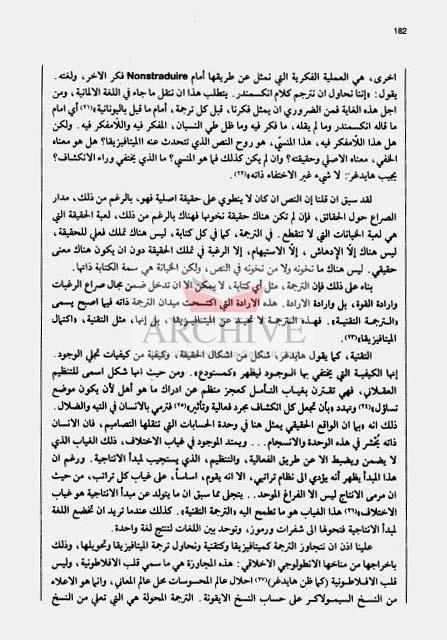 182
اخرى، هي العملية الفكرية التي نمثل عن طريقها أمام Nonstraduire فكر الاخر، ولغته.
يقول: «إننا نحاول ان نترجم كلام انكسمندر. يتطلب هذا ان ننقل ما جاء في اللغة الالمانية، ومن
اجل هذه الغاية فمن الضروري ان يمثل فكرنا، قبل كل ترجمة، أمام ما قيل باليونانية»(٢١) أي امام
ما قاله انكسمندر وما لم يقله، ما فكر فيه وما ظل طي النسيان، المفكر فيه واللامفكر فيه. ولكن
هل هذا اللامفكر فيه، هذا المنسيّ، هو روح النص الذي تتحدث عنه الميتافيزيقا؟ هل هو معناه
الخفي، معناه الاصلي وحقيقته؟ وان لم يكن كذلك فما هو المنسي؟ ما الذي يختفي وراء الانكشاف؟
يجيب هايدغر: لا شيء غير الاختفاء ذاته»(٢٢).
لقد سبق ان قلنا إن النص ان كان لا ينطوي على حقيقة اصلية فهو، بالرغم من ذلك، مدار
الصراع حول الحقائق، فإن لم تكن هناك حقيقة نخونها فهناك بالرغم من ذلك، لعبة الحقيقة التي
هي لعبة الخيانات التي لا تنقطع. في الترجمة، كما في كل كتابة، ليس هناك تملك فعلي للحقيقة،
ليس هناك إلّا الإدهاش، إلّا الاستيهام، إلا الرغبة في تملك الحقيقة دون ان يكون هناك معنى
حقيقي. ليس هناك ما نخونه ولا من نخونه في النص، ولكن الخيانة هي سمة الكتابة ذاتها.
بناء على ذلك فإن الترجمة، مثل أي كتابة، لا يمكن الا ان تدخل ضمن مجال صراع الرغبات
وارادة القوة، بل وارادة الارادة. هذه الارادة التي اكتسحت ميدان الترجمة ذاته فيما اصبح يسمى
«الترجمة التقنية». فهذه الترجمة لا تحيد عن الميتافيزيقا، بل إنها، مثل التقنية، «اكتمال
الميتافيزيقا»(٢٣).
التقنية، كما يقول هايدغر، شكل من اشكال الحقيقة، وكيفية من كيفيات تجلي الوجود.
إنها الكيفية التي يختفي بها الوجود ليظهر «كمستودع». ومن حيث انها شكل اسمى للتنظيم
العقلاني، فهي تقترن بغياب التأمل كعجز منظم عن ادراك ما هو أهل لأن يكون موضع
تساؤل»(٢٤) وتهدد «بأن تجعل كل انكشاف مجرد فعالية وتأثير»(٢٥) فترمي بالانسان في التيه والضلال.
ذلك انه «بما ان الواقع الحقيقي يمثل هنا في وحدة الحسابات التي تنقلها التصاميم، فان الانسان
ذاته يحشر في هذه الوحدة والانسجام... ويمتد الموجود في غياب الاختلاف، ذلك الغياب الذي
لا يضمن ويضبط الا عن طريق الفعالية، والتنظيم، الذي يستجيب لمبدأ الانتاجية. ورغم ان
هذا المبدأ يظهر أنه يؤدي الى نظام تراتبي، الا انه يقوم، اساساً، على غياب كل تراتب، من حيث
ان مرمى الانتاج ليس الا الفراغ الموحد... يتجلى مما سبق ان ما يتولد عن مبدأ الانتاجية هو غياب
الاختلاف»(٢٦) هذا الغياب هو ما تطمح اليه «الترجمة التقنية». كذلك عندما تريد ان تخضع اللغة
لمبدأ الانتاجية فتحولها الى شفرات ورموز، وتوحد بين اللغات لتنتج لغة واحدة.
علينا اذن ان نتجاوز الترجمة كميتافيزيقا وكتقنية ونحاول ترجمة الميتافيزيقا وتحويلها، وذلك
باخراجها من مناخها الانطولوجي الاخلاقي: هذه المجاوزة هي ما سمي قلب الافلاطونية، وليس
قلب الافلاطونية (كما ظن هايدغر)(٢٧) احلال عالم المحسوسات محل عالم المعاني، وانما هو الاعلاء
من النسخ السيمولاكر على حساب النسخ الايقونة. الترجمة المحولة هي التي تعلي من النسخ
ARCHIVE